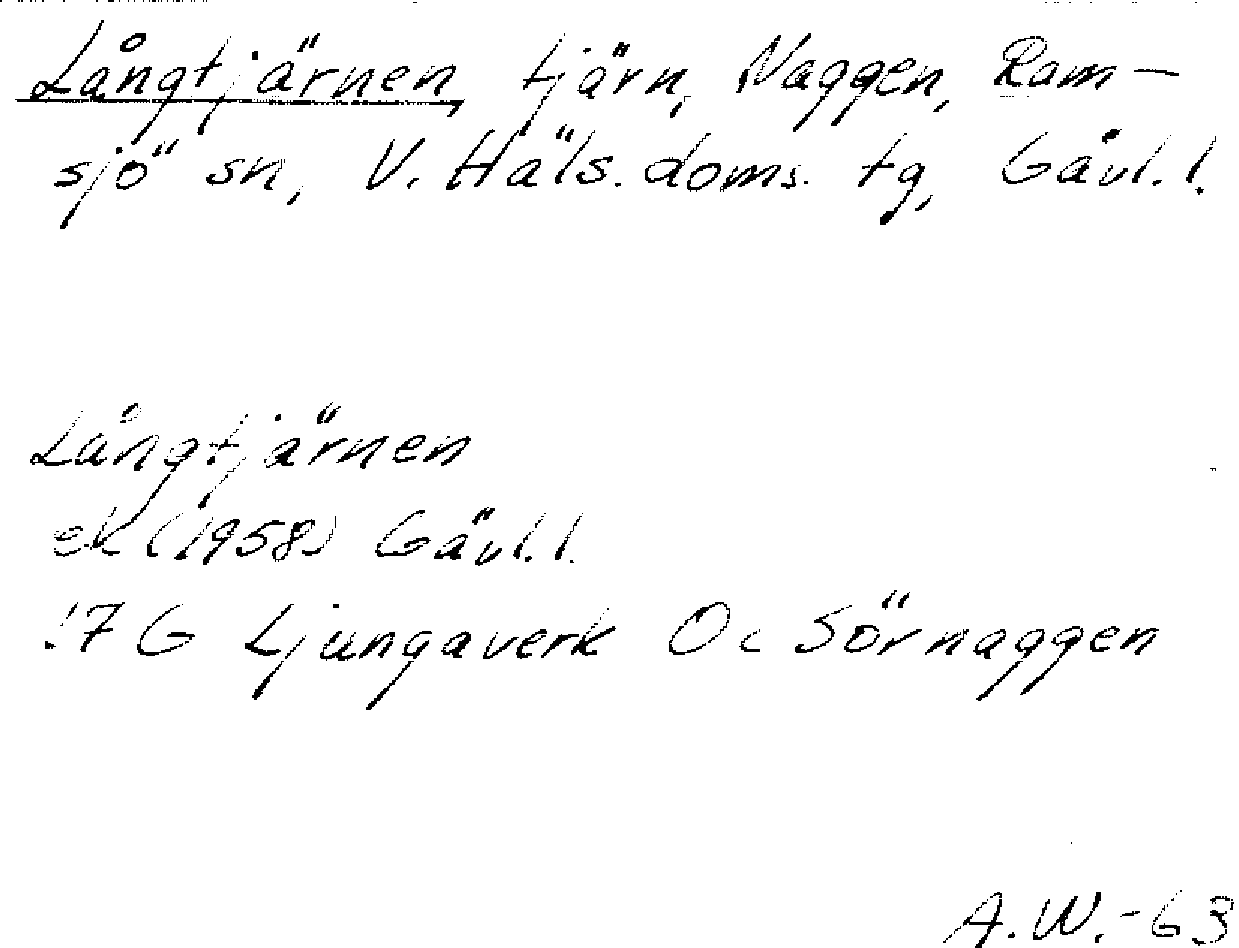 Långtjärnen, tjärn, Naggen, Ram-
sjö sn, V. Häls. doms. tg, Gävl. l.
Långtjärnen
ek (1958) Gävl. l.
17G Ljungaverk 0c Sörnaggen
A.W.-63